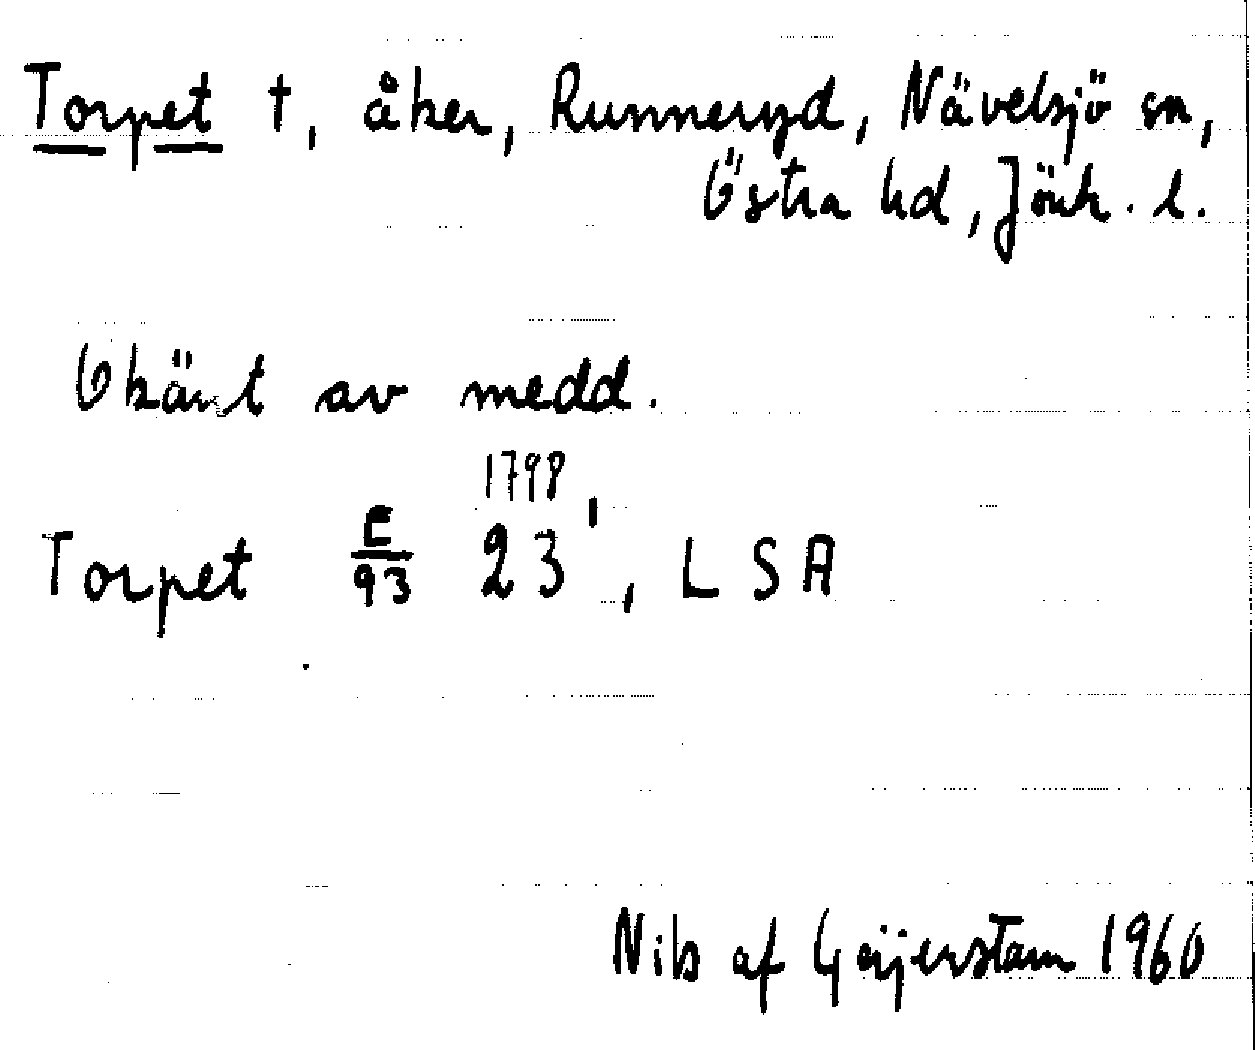 Torpet †, åker, Runneryd, Nävelsjö sn,
Östra hd, Jönk. l.
Okänt av medd.
1798
Torpet E/93 23', LSA
Nils af Geijerstam 1960